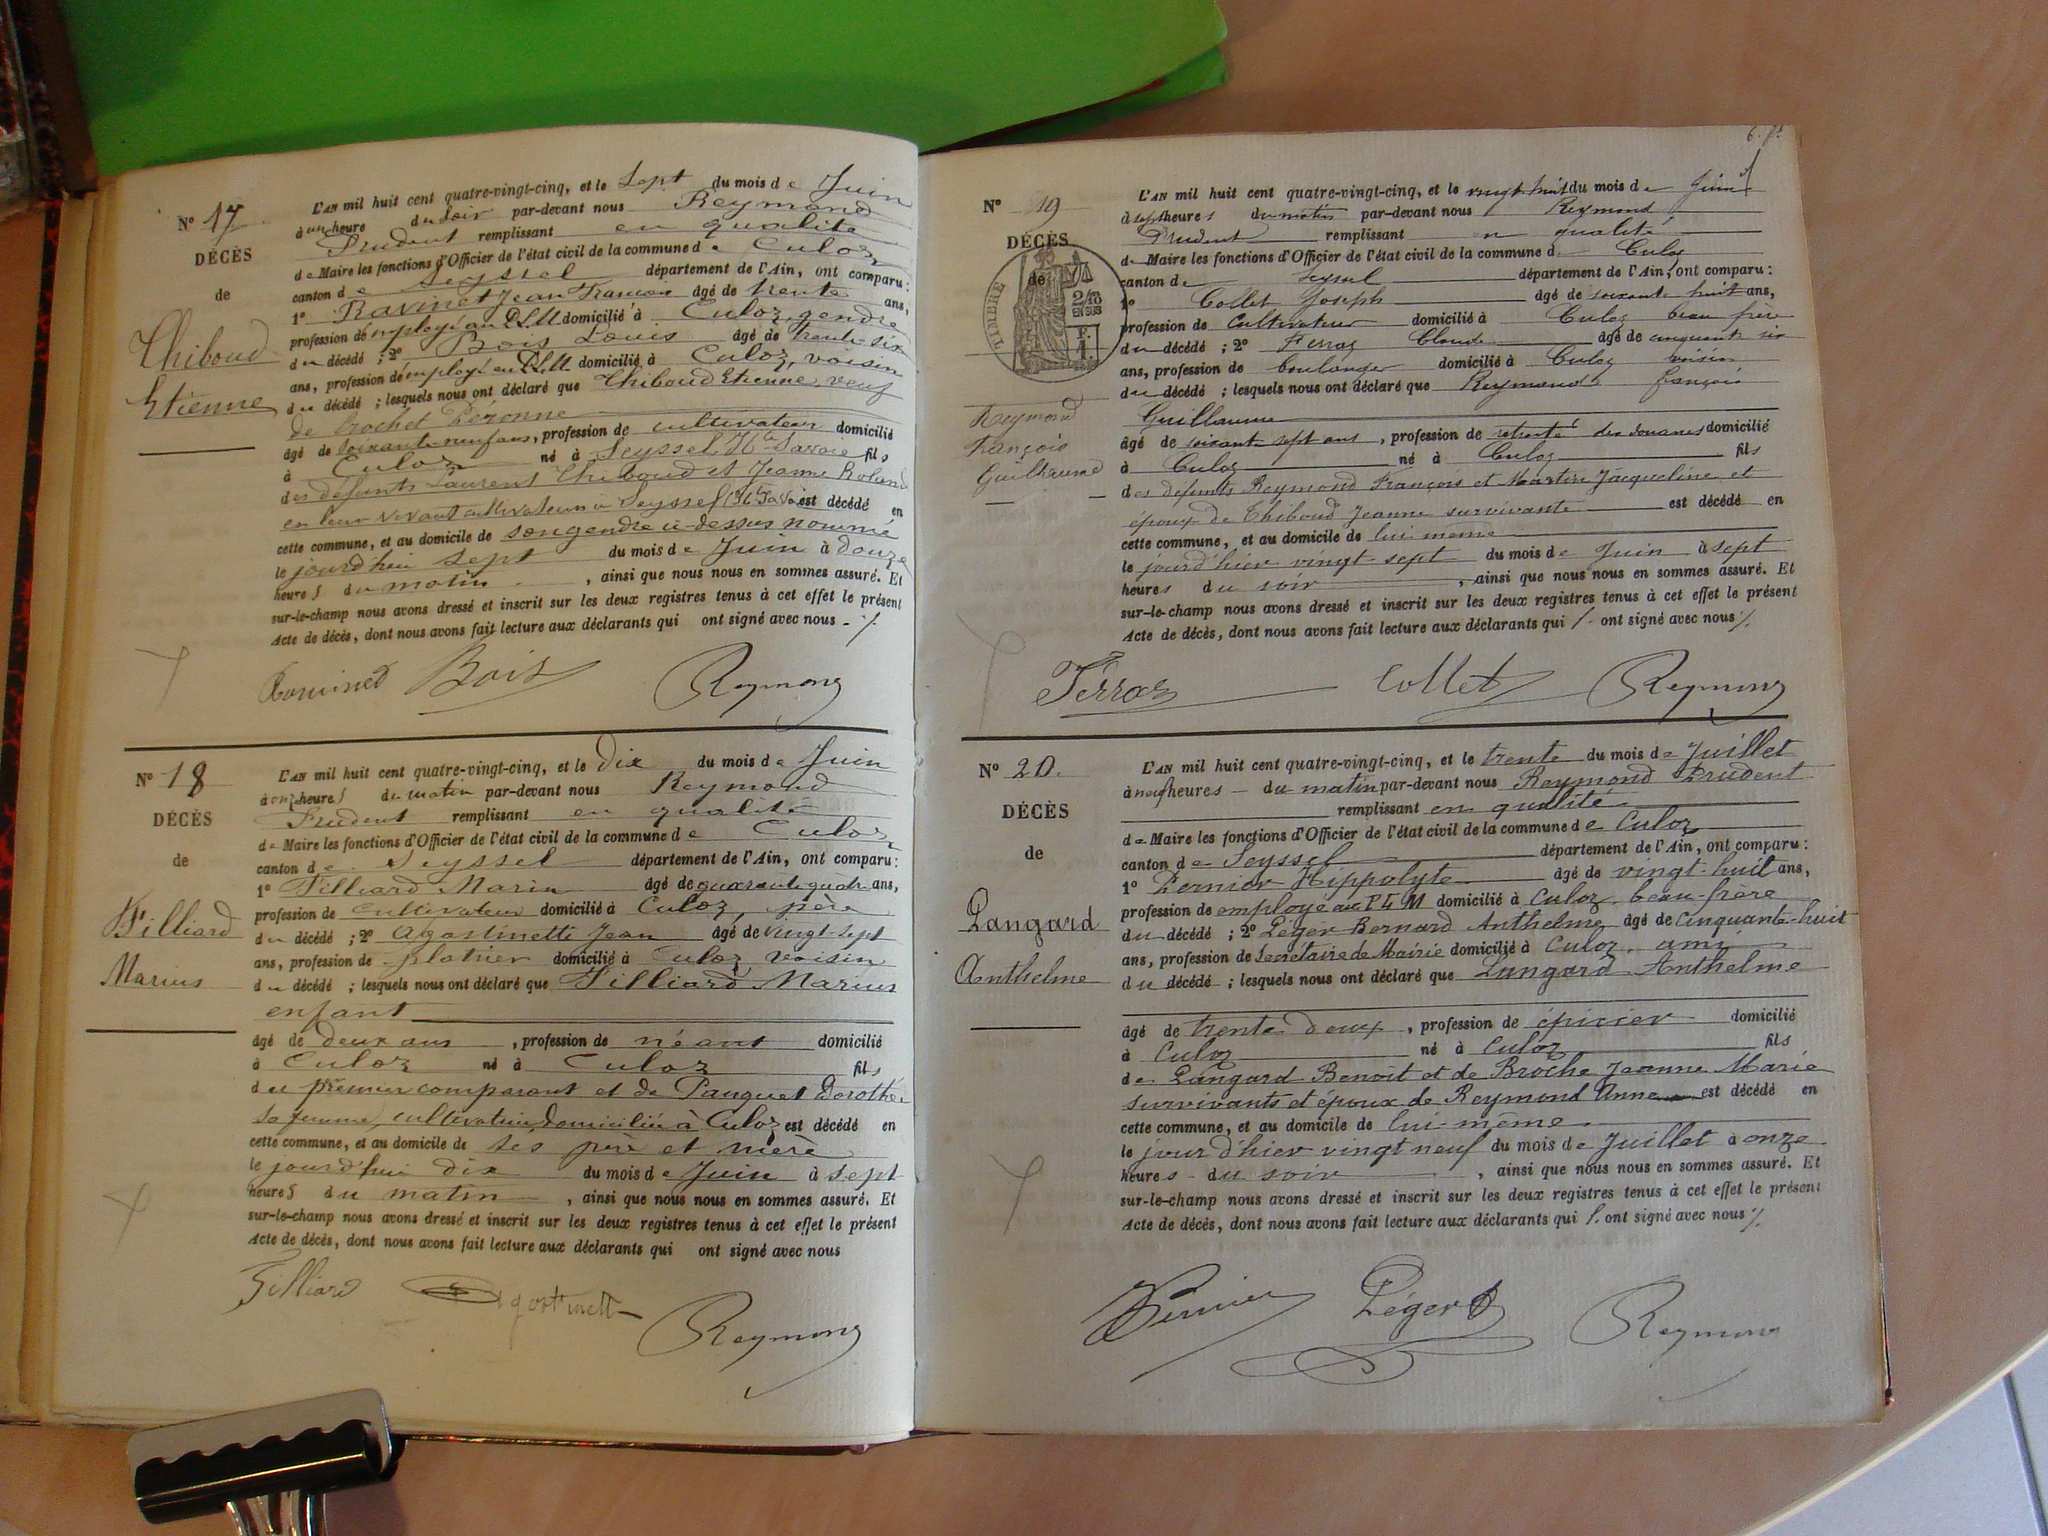 N° 17
DÉCÈS
de
Thiboud
Etienne
L'AN mil huit cent quatre-vingt-cinq, et le Sept du mois de Juin
à une heure du soir par-devant nous Reymond
Prudent remplissant en qualité
de Maire les fonctions d'Officier de l'état civil de la commune de Culoz
canton de Seyssel département de l'Ain, ont comparu :
1° Ravinet Jean François âgé de trente ans,
profession de employé au PLM domicilié à Culoz, gendre
du décédé ; 2° Bois Louis âgé de trente-six
ans, profession de employé au PLM domicilié à Culoz, voisin
du décédé ; lesquels nous ont déclaré que Thiboud Etienne, veuf
de Brochet Péronne
âgé de soixante-neuf ans, profession de cultivateur domicilié
à Culoz né à Seyssel, Hte Savoie fils
des défunts Laurent Thiboud et Jeanne Roland
en leur vivant cultivateurs à Seyssel (Hte Savoie) est décédé en
cette commune, et au domicile de son gendre ci-dessus nommé
le jourd'hui sept du mois de Juin à douze
heures du matin , ainsi que nous nous en sommes assuré. Et
sur-le-champ nous avons dressé et inscrit sur les deux registres tenus à cet effet le présent
Acte de décès, dont nous avons fait lecture aux déclarants qui ont signé avec nous ./.
Bois Reymond
N° 18
DÉCÈS
de
Filliard
Marius
L'AN mil huit cent quatre-vingt-cinq, et le dix du mois de Juin
à onze heures du matin par-devant nous Reymond
Prudent remplissant en qualité
de Maire les fonctions d'Officier de l'état civil de la commune de Culoz
canton de Seyssel département de l'Ain, ont comparu :
1° Filliard Marin âgé de quarante-quatre ans,
profession de cultivateur domicilié à Culoz, père
du décédé ; 2° Agostinetti Jean âgé de vingt-sept
ans, profession de plâtrier domicilié à Culoz, voisin
du décédé ; lesquels nous ont déclaré que Filliard Marius
enfant
âgé de deux ans , profession de néant domicilié
à Culoz né à Culoz fils
du premier comparant et de Pauguet Dorothée
sa femme, cultivateurs, domiciliés à Culoz est décédé en
cette commune, et au domicile de ses père et mère
le jourd'hui dix du mois de Juin à sept
heures du matin , ainsi que nous nous en sommes assuré. Et
sur-le-champ nous avons dressé et inscrit sur les deux registres tenus à cet effet le présent
Acte de décès, dont nous avons fait lecture aux déclarants qui ont signé avec nous
Filliard Agostinetti
Reymond
N° 19
DÉCÈS
de
TIMBRE
2/10
EN SUS
Reymond
François
Guillaume
L'AN mil huit cent quatre-vingt-cinq, et le vingt huit du mois de Juin
à sept heures du matin par-devant nous Reymond
Prudent remplissant en qualité
de Maire les fonctions d'Officier de l'état civil de la commune de Culoz
canton de Seyssel département de l'Ain, ont comparu :
1° Collet Joseph âgé de soixante huit ans,
profession de cultivateur domicilié à Culoz beau frère
du décédé ; 2° Ferraz Claude âgé de cinquante six
ans, profession de boulanger domicilié à Culoz voisin
du décédé ; lesquels nous ont déclaré que Reymond François
Guillaume
âgé de soixant sept ans , profession de retraité des douanes domicilié
à Culoz né à Culoz fils
des défunts Reymond François et Martin Jacqueline et
époux de Thiboud Jeanne survivante est décédé en
cette commune, et au domicile de lui même
le jourd'hier vingt sept du mois de Juin à sept
heures du soir , ainsi que nous nous en sommes assuré. Et
sur-le-champ nous avons dressé et inscrit sur les deux registres tenus à cet effet le présent
Acte de décès, dont nous avons fait lecture aux déclarants qui ont signé avec nous ./.
Ferraz Collet Reymond
N° 20
DÉCÈS
de
Pangard
Anthelme
L'AN mil huit cent quatre-vingt-cinq, et le trente du mois de Juillet
à neuf heures du matin par-devant nous Reymond Prudent
remplissant en qualité
de Maire les fonctions d'Officier de l'état civil de la commune de Culoz
canton de Seyssel département de l'Ain, ont comparu :
1° Pernier Hippolyte âgé de vingt-huit ans,
profession de employé au PLM domicilié à Culoz, beau-frère
du décédé ; 2° Léger Bernard Anthelme âgé de cinquante-huit
ans, profession de Secrétaire de Mairie domicilié à Culoz, ami
du décédé ; lesquels nous ont déclaré que Pangard Anthelme
âgé de trente deux , profession de épicier domicilié
à Culoz né à Culoz fils
de Pangard Benoît et de Broche Jeanne Marie
survivants et époux de Reymond Anne est décédé en
cette commune, et au domicile de lui-même
le jour d'hier vingt neuf du mois de Juillet à onze
heures du soir , ainsi que nous nous en sommes assuré. Et
sur-le-champ nous avons dressé et inscrit sur les deux registres tenus à cet effet le présent
Acte de décès, dont nous avons fait lecture aux déclarants qui ont signé avec nous ./.
Pernier Léger Reymond